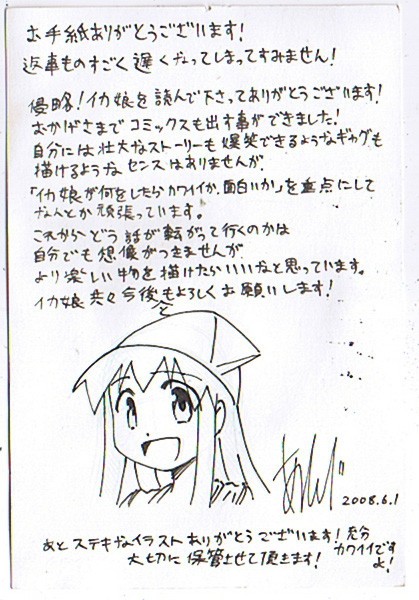 お手紙ありがとうございます!
返事ものすごく遅くなってしまってすみません!
侵略!イカ娘を読んで下さってありがとうございます!
おかげさまでコミックスも出す事ができました!
自分には壮大なストーリーも爆笑できるようなギャグも
描けるようなセンスはありませんが
「イカ娘が何をしたらカワイイか、面白いか」を重点にして
なんとか頑張っています。
これからどう話が転がって行くのかは
自分でも想像がつきませんが
より楽しい物を描けたらいいなと思っています。
イカ娘共々今後もよろしくお願いします!
と
2008.6.1
あとステキなイラストありがとうございます!充分
カワイイです
大切に保管させて頂きます!
よ!